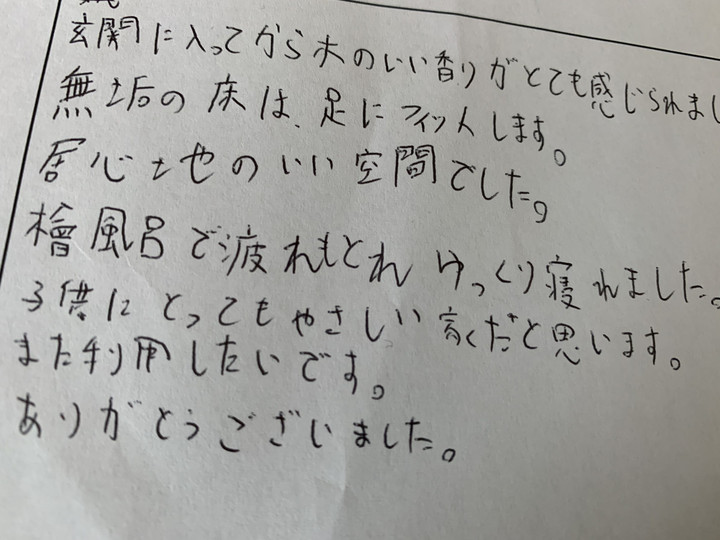 玄関に入ってから木のいい香りがとても感じられまし
無垢の床は、足にフィットします。
居心地のいい空間でした。
檜風呂で疲れもとれゆっくり寝れました。
子供にとってもやさしい家だと思います。
また利用したいです。
ありがとうございました。